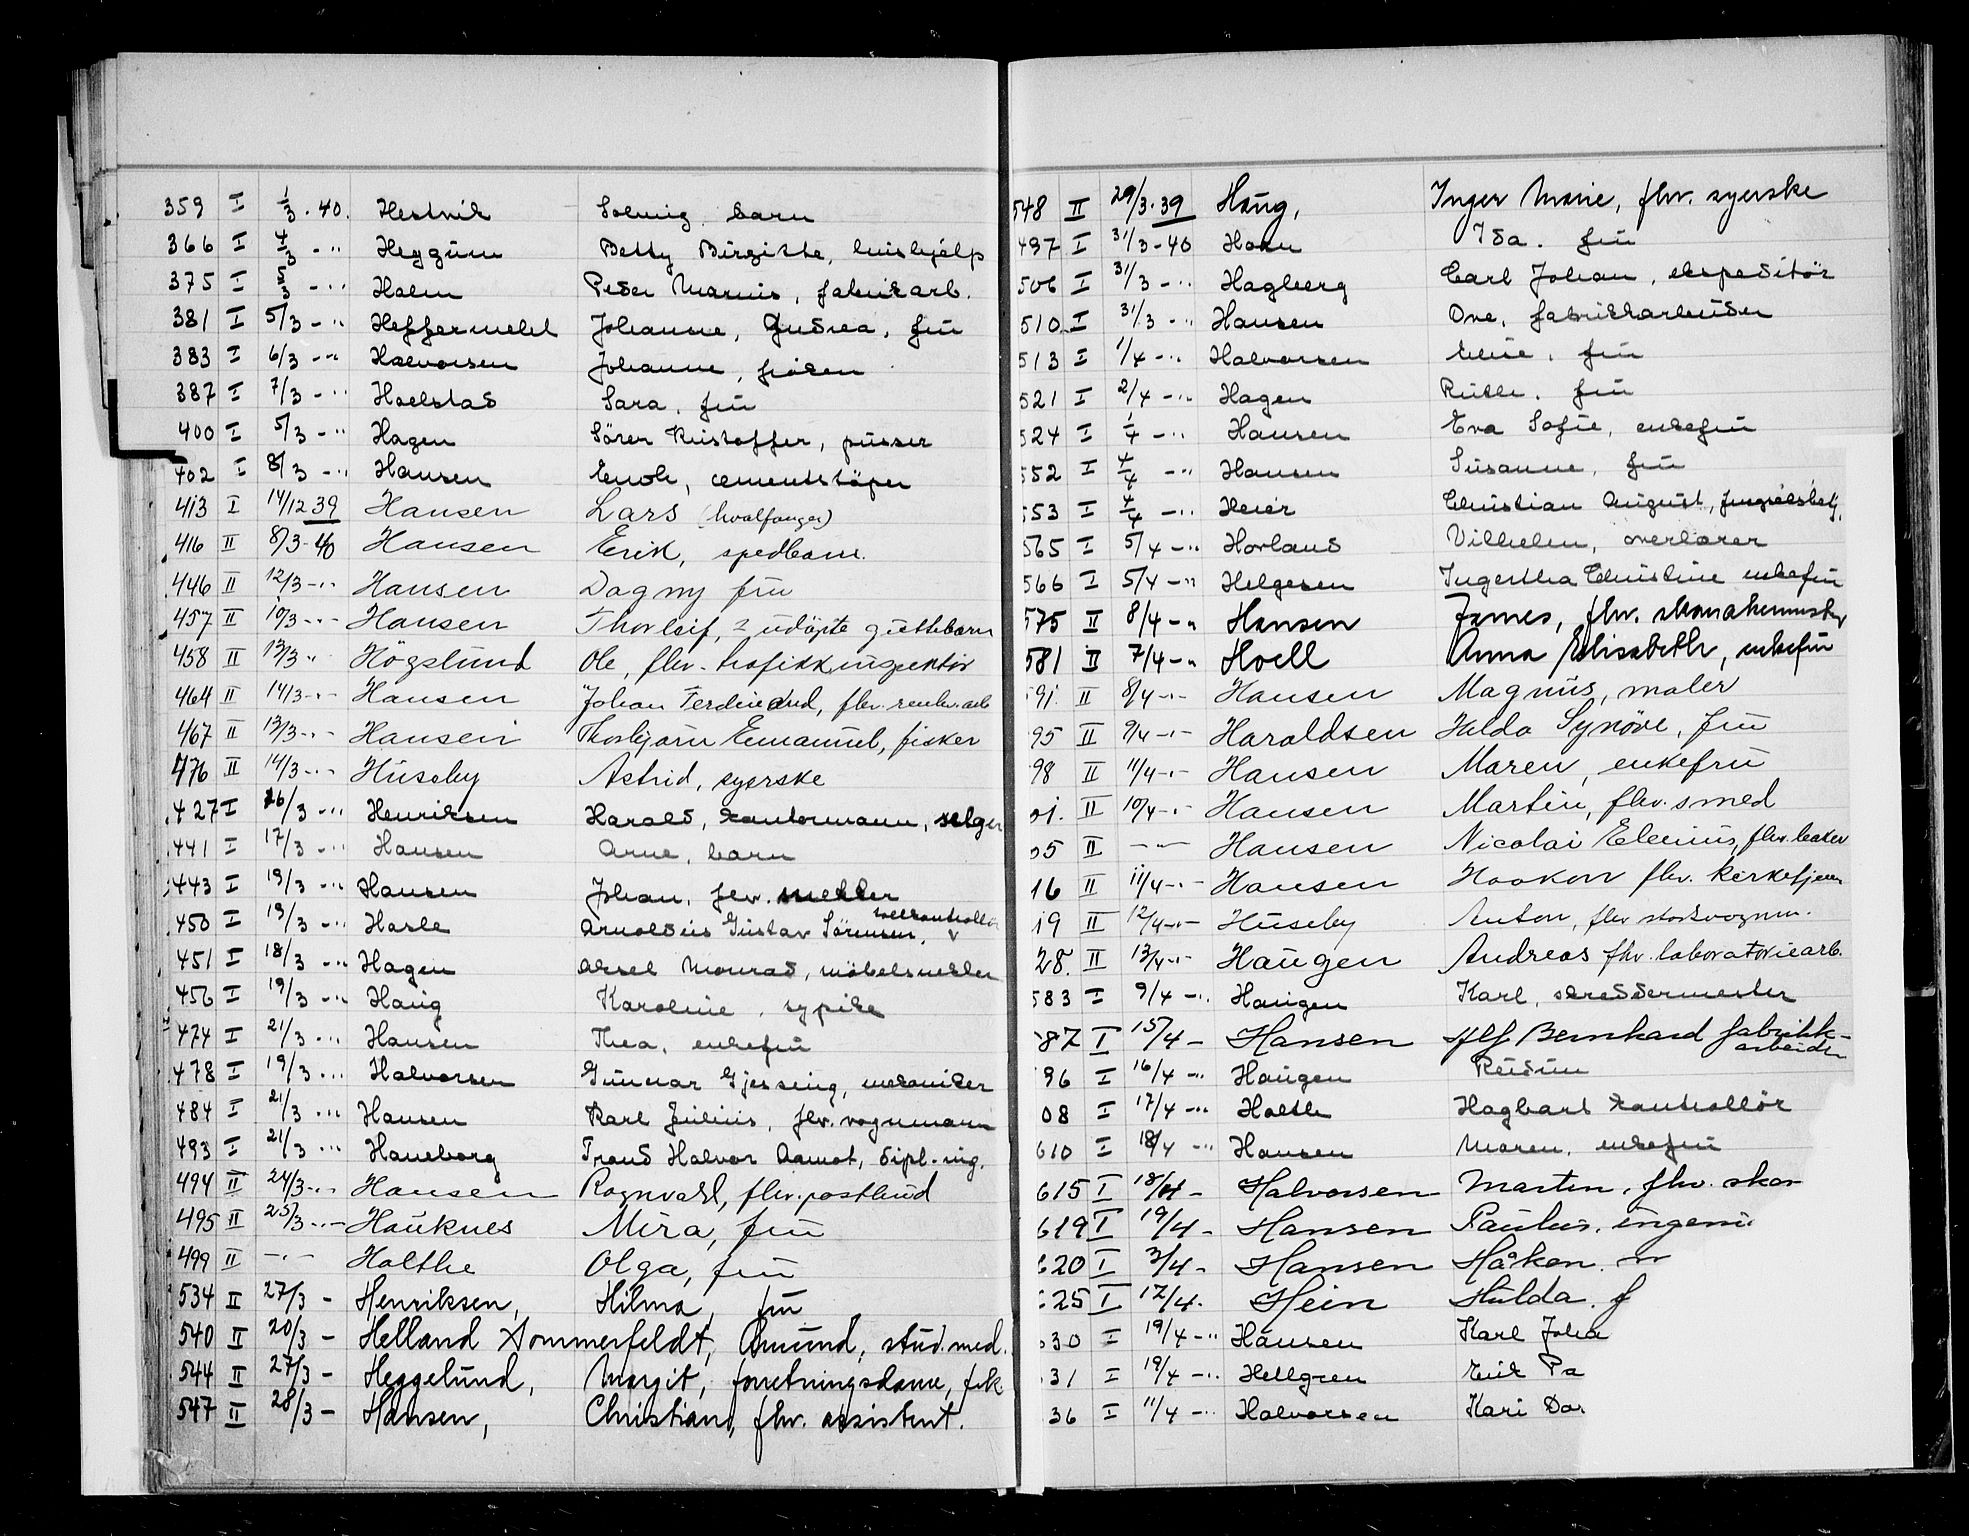 359 I 1/3 . 40. Hestvik Solveig. barn
366 I 4/3 - " Heggum Betty Birgitte, hushjelp
375 I 5/3 - " Holm Peder Marius, fabrikarb.
381 I 5/3 - " Heffermehl Johanne, Gudrea, fru
383 I 6/3 - " Halvorsen Johanne, frøken
387 I 7/3 - " Hoelstad Sara. fru
400 I 5/3 - " Hagen Sören Kristoffer, pusser
402 I 8/3 - " Hansen Enok, cementstöper
413 I 14/12 39 Hansen Lars (hvalfanger)
416 II 8/3-40 Hansen Erik, spedbarn.
446 II 12/3 - " Hansen Dagny fru
457 II 10/3 - " Hansen Thorleif, 2 udöpte guttebarn
458 II 13/3 " Högslund Ole, fhv. trafikkinspektör
464 II 14/3 - " Hansen Johan Ferdinand, fhv. renh. arb
467 II 13/3 - " Hansen Thorbjørn Emanuel, fisker
476 II 14/3 - " Huseby Astrid, syerske
427 I 16/3 - " Henriksen Harald, kontormann, selger
441 I 17/3 - " Hansen Arne, barn
443 I 19/3 - " Hansen Johan, fhv. snekker
450 I 19/3 - " Harle Arnoldus Gustav Sörensen, tollkontrollör
451 I 18/3 - " Hagen Aksel Monrad, möbelsnekker
456 I 19/3 - " Haug Karoline, sypike
474 I 21/3 - " Hansen Thea, enkefru
478 I 19/3 - " Halvorsen Gunnar Gjessing, mekaniker
484 I 21/3 - " Hansen Karl Julius, fhv. vognmann
493 I 21/3 - " Haneborg Trond Halvor Aamot, dipl. ing.
494 II 24/3 - " Hansen Ragnvald, fhv. postbud
495 II 25/3 - " - Hauknes Mira, fru
499 II - " - Holthe Olga, fru
534 II 27/3 - Henriksen, Hilma, fru
540 II 20/3 - Helland Sommerfeldt, Amund, stud. med.
544 II 27/3 - Heggelund, Margit, forretningsdame, frk
547 II 28/3 - Hansen, Christian, fhv. assistent.
548 II 29/3.39 Haug, Inger Marie, fhv. syerske
497 I 31/3-40 Horn Ida. fru
506 I 31/3 - " Hagberg Carl Johan, ekspeditör
510. I 31/3 - " Hansen Ove, fabrikkarbeider
513 I 1/4 - " Halvorsen Eline, fru
521 I 2/4 - " Hagen Ruth. fru
524 I 1/4 - " Hansen Eva Sofie, enkefru
552 I 4/4 - " Hansen Susanne, fru
553 I 4/4 - " Heier Christian August,
565 I 5/4 - " Hovland Vilhelm, overlærer
566 I 5/4 - " Helgesen Ingertha Christine enkefru
575 II 8/4 - " Hansen James, fhv. skomakermester
581 II 7/4 - " Hoell Anna Elisabeth, enkefru
91. II 8/4 - " - Hansen Magnus, maler
95 II 9/4 - " - Haraldsen Hulda Synöve, fru
98 II 11/4 - " - Hansen Maren, enkefru
01. II 10/4 - " - Hansen Martin, fhv. smed
05 II - " - Hansen Nicolai Elenius, fhv. baker
16 II 11/4 - " - Hansen Haakon fhv. kirketjener
19 II 12/4 - " - Huseby Anton, fhv
28. II 13/4 - " - Haugen Andreas fhv. laboratoriearb.
583 I 9/4 - " Haugen Karl, skreddermester
87 I 15/4 - Hansen Alf Bernhard fabrikk-
arbeider
96 I 16/4 - " Haugen Reidun
08 I 17/4 - " Holth Hagbart kontrollör
610 I 18/4 - " Hansen Maren, enkefru
615 I 18/4 - Halvorsen Martin, fhv. skom
619 I 19/4 - Hansen Paulus. ingeni
620 I 3/4 - Hansen Håkon.
625 I 17/4. Hein Hulda. f
30 I 19/4 - " Hansen Karl Joha
31 I 19/4 - " Hellgren Erik Pa
36 I 11/4 - " Halvorsen Kari Dor